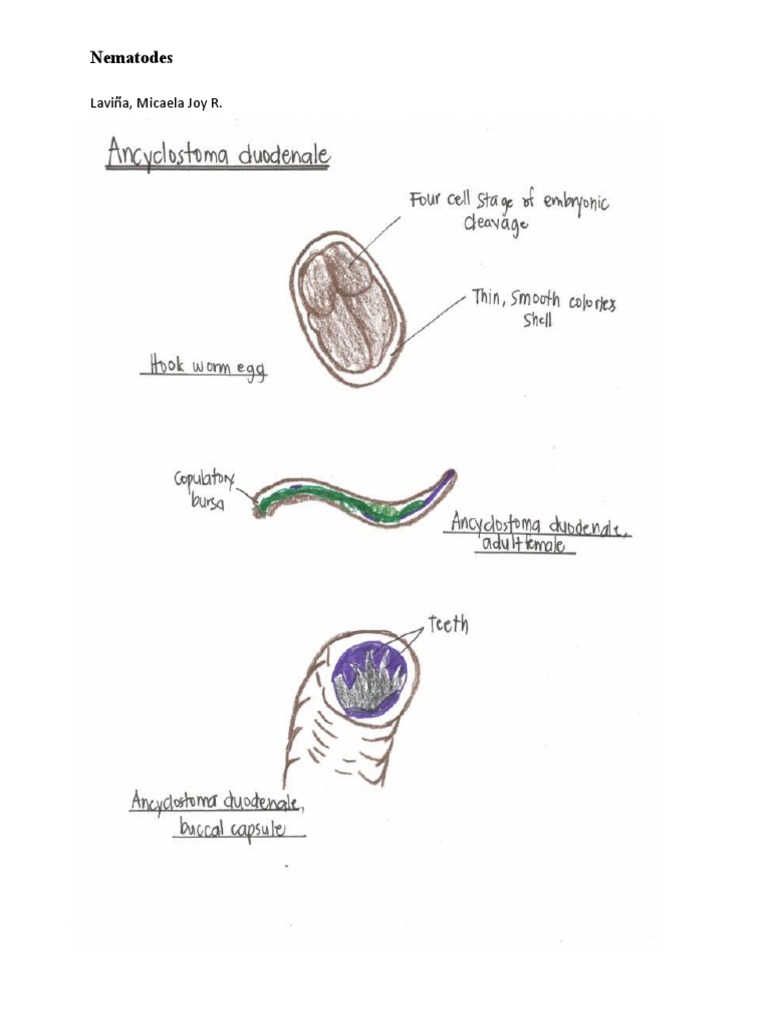 Nematodes
Laviña, Micaela Joy R.
Ancyclostoma duodenale
Four cell stage of embryonic
cleavage
Thin, smooth colorles
shell
Hook worm egg
Copulatory
bursa
Ancyclostoma duodenale,
adult female
Teeth
Ancyclostoma duodenale,
buccal capsule